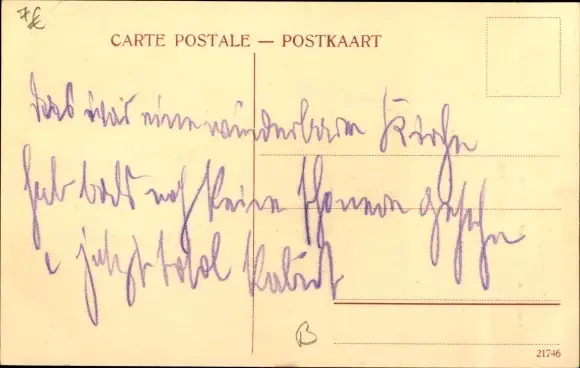 7€
CARTE POSTALE — POSTKAART
Das war eine wunderbare Kirche
hab bald noch keine schönere gesehn
u jetzt total kaputt
B
21746